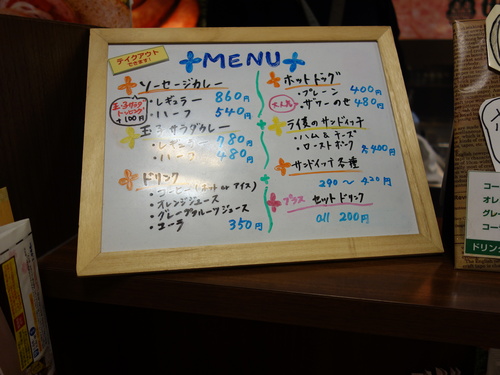 テイクアウト
できます!
MENU
ソーセージカレー
・レギュラー 860円
・ハーフ 540円
玉子サラダ
トッピング
+100円
玉子サラダカレー
・レギュラー 780円
・ハーフ 480円
ドリンク
・コーヒー(ホット or アイス)
・オレンジジュース
・グレープフルーツジュース
・コーラ 350円
ホットドッグ
・プレーン 400円
大人気
・ザワーのせ 480円
ライ麦のサンドイッチ
・ハム&チーズ
・ローストポーク 各400円
サンドイッチ各種
290〜420円
プラス セットドリンク
all 200円
コー
オレ
グレ
コー
ドリン